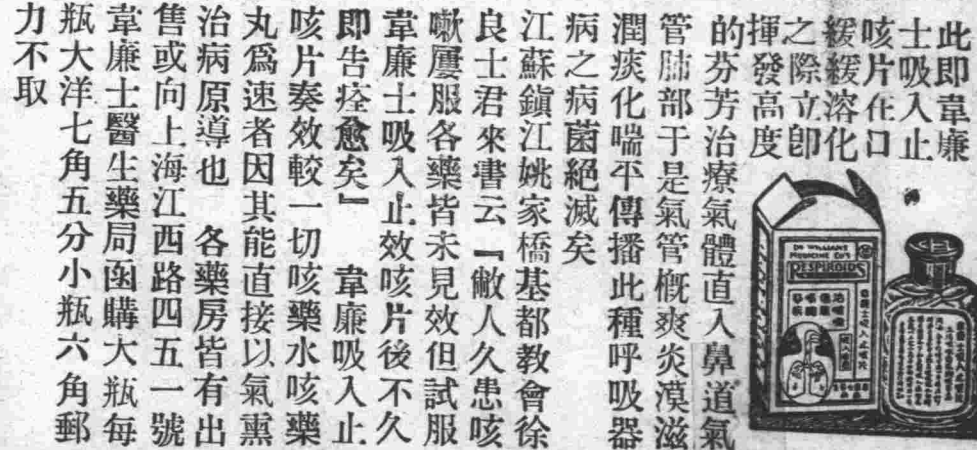 此即韋廉
士吸入止
咳片在口
緩緩溶化
之際立卽
揮發高度
的芬芳治療氣體直入鼻道氣
管肺部于是氣管慨爽炎漠滋
潤痰化喘平傳播此種呼吸器
病之病菌絕滅矣
江蘇鎭江姚家橋基都教會徐
良士君來書云『敝人久患咳
嗽屢服各藥皆未見效但試服
韋廉士吸入止效咳片後不久
即告痊愈矣』 韋廉吸入止
咳片奏效較一切咳藥水咳藥
丸爲速者因其能直接以氣熏
治病原導也 各藥房皆有出
售或向上海江西路四五一號
韋廉士醫生藥局函購大瓶每
瓶大洋七角五分小瓶六角郵
力不取
DR WILLIAMS
MEDICINE CO'S
RESPIROIDS